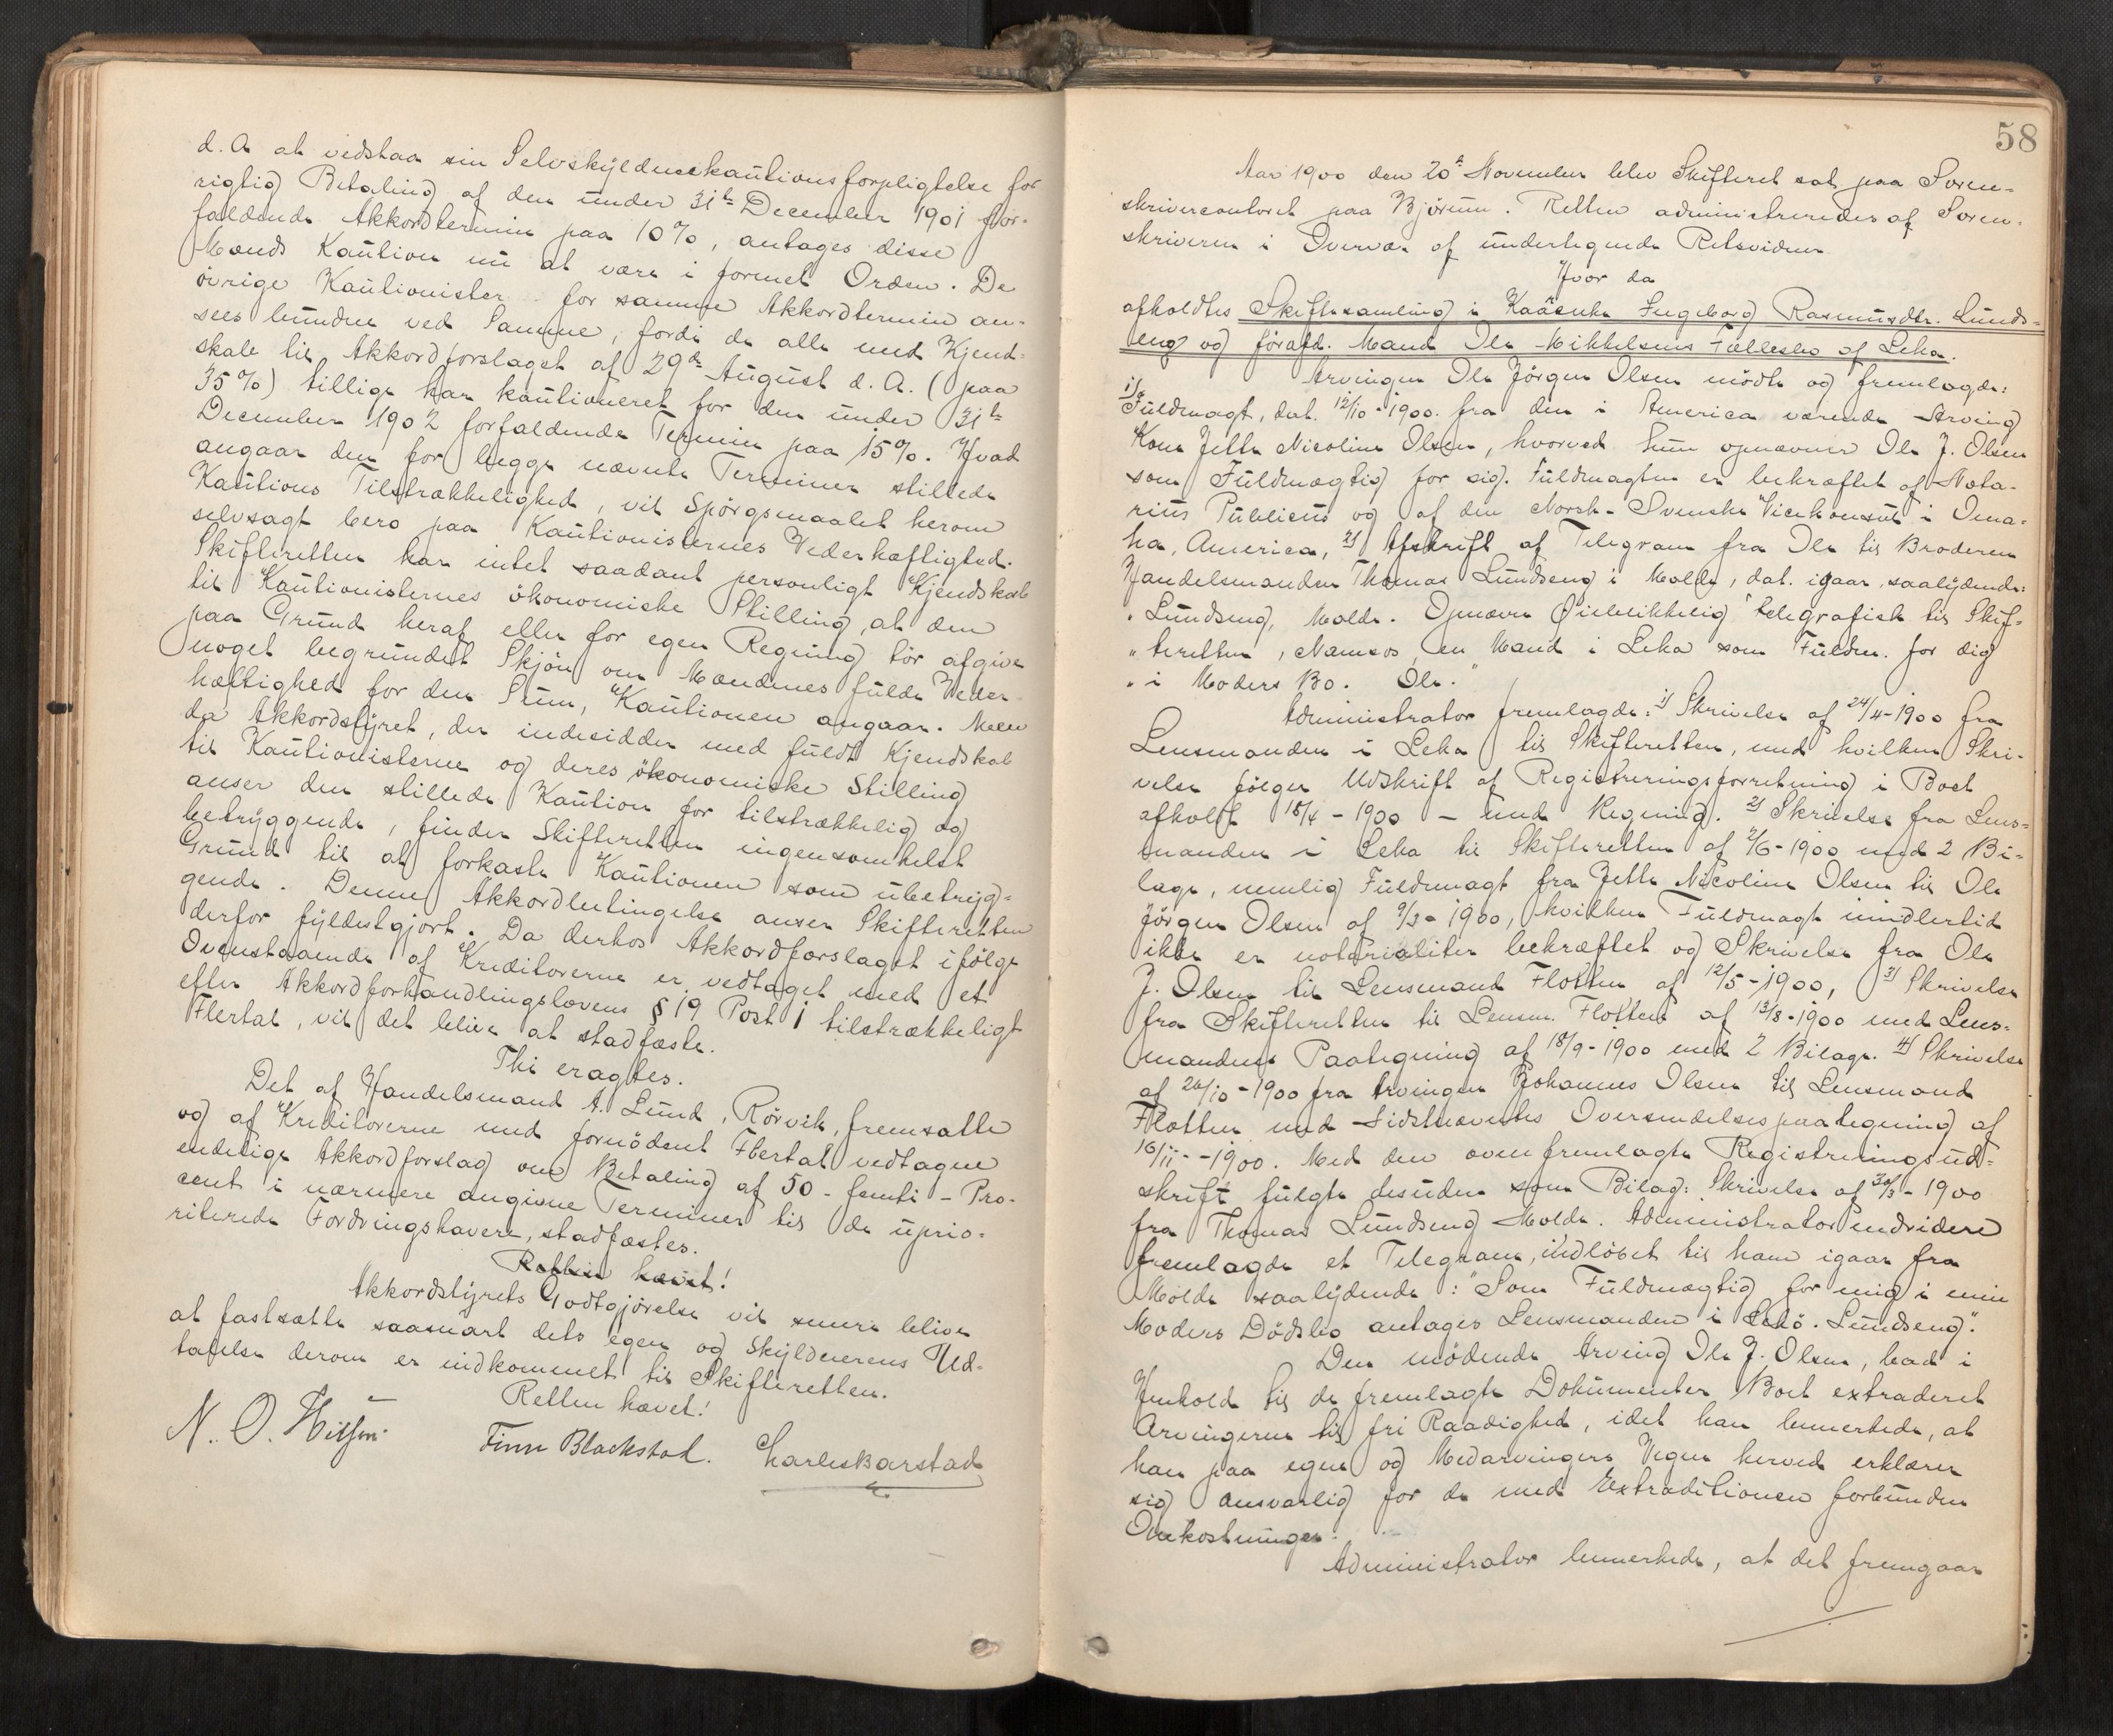 d. A. at vedstaa sin Selvskyldnerkautionsforpligtelse for
rigtig Betaling af den under 31te December 1901 for-
faldende Akkordtermin paa 10%, antages disse
Mænds Kaution nu at være i formel Orden. De
øvrige Kautionister for samme Akkordtermin an-
sees bundne ved Samme, fordi de alle med Kjend-
skab til Akkordforslaget af 29de August d. A. (paa
35%) tillige har kautioneret for den under 31te
December 1902 forfaldende Termin paa 15%. Hvad
angaar den for begge nævnte Terminer stillede
Kautions Tilstrækkelighed, vil Spørgsmaalet herom
selvsagt bero paa Kautionisternes Vederhæftighed.
Skifteretten har intet saadant personligt Kjendskab
til Kautionisternes økonomiske Stilling, at den
paa Grund heraf eller for egen Regning tør afgive
noget begrundet Skjøn om Mændenes fulde Veder-
hæftighed for den Sum, Kautionen angaar. Men
da Akkordstyret, der indesidder med fuldt Kjendskab
til Kautionisterne og deres økonomiske Stilling
anser den stillede Kaution for tilstrækkelig og
betryggende, finder Skifteretten ingensomhelst
Grund til at forkaste Kautionen som ubetryg-
gende. Denne Akkordbetingelse anser Skifteretten
derfor fyldestgjort. Da derhos Akkordforslaget ifølge
Ovenstaaende af Kreditorerne er vedtaget med et
efter Akkordforhandlingslovens § 19 Post 1 tilstrækkeligt
Flertal, vil det blive at stadfæste.
Thi eragtes.
Det af Handelsmand A. Lund, Rørvik, fremsatte
og af Kreditorerne med fornødent Flertal vedtagne
endelige Akkordforslag om Betaling af 50 - femti - Pro-
cent i nærmere angivne Terminer til de uprio-
riterede Fordringshavere, stadfæstes.
Retten hævet!
Akkordstyrets Godtgjørelse vil senere blive
at fastsætte saasnart dets egen og Skyldnerens Ud-
talelse derom er indkommet til Skifteretten.
Retten hævet!
N. O. Finn Blackstad. Charles Barstad
58
Aar 1900 den 20de November blev Skifteret sat paa Soren-
skrivercontoret paa Bjørum. Retten administreredes af Soren-
skriveren i Overvær af undertegnede Retsvidner
Hvor da
afholdtes Skiftesamling i Kaaenke Ingeborg Rasmusdtr. Lunds-
eng og førafd. Mand Ole Mikkelsens Fællesbo af Leka.
Arvingen Ole Jørgen Olsen mødte og fremlagde:
1/ Fuldmagt, dat. 12/10-1900. fra den i America værende Arving
Kone Jette Nicoline Olsen, hvorved hun opnævner Ole J. Olsen
som Fuldmægtig for sig. Fuldmagten er bekræftet af Nota-
rius Publicus og af den Norsk-Svenske Vicekonsul i Oma-
ha, America, 2/ Afskrift af Telegram fra Ole til Broderen
Handelsmanden Thomas Lundseng i Molde, dat. igaar, saalydende:
"Lundseng, Molde. Opnævn Øieblikkelig telegrafisk til Skif-
"teretten, Namsos, en Mand i Leka som Fuldm. for dig
"i Moders Bo. Ole."
Administrator fremlagde: 1/ Skrivelse af 24/4-1900 fra
Lensmanden i Leka til Skifteretten, med hvilken Skri-
velse følger Udskrift af Registreringsforretning i Boet
afholdt 18/4 - 1900 - med Regning. 2/ Skrivelse fra Lens-
manden i Leka til Skifteretten af 2/6-1900 med 2 Bi-
lage, nemlig Fuldmagt fra Jette Nicoline Olsen til Ole
Jørgen Olsen af 9/3-1900, hvilken Fuldmagt imidlertid
ikke er notarialiter bekræftet og Skrivelse fra Ole
J. Olsen til Lensmand Flotten af 12/5-1900, 3/ Skrivelse
fra Skifteretten til Lensm. Flotten af 13/8-1900 med Lens-
mandens Paategning af 18/9-1900 med 2 Bilage. 4/ Skrivelse
af 26/10-1900 fra Arvingen Johannes Olsen til Lensmand
Flotten med Sidstnævntes Oversendelsespaategning af
16/11--1900. Med den ovenfremlagte Registreringsud-
skrift fulgte desuden som Bilag: Skrivelse af 30/3-1900
fra Thomas Lundseng Molde. Administrator endvidere
fremlagde et Telegram, indløbet til ham igaar fra
Molde saalydende: "Som Fuldmægtig for mig i min
Moders Dødsbo antages Lensmanden i Lekø. Lundseng".
Den mødende Arving Ole J. Olsen, bad i
Henhold til de fremlagte Dokumenter Boet extraderet
Arvingerne til fri Raadighed, idet han bemerkede, at
han paa egne og Medarvingers Vegne herved erklærer
sig ansvarlig for de med Extraditionen forbundne
Omkostninger.
Administrator bemerkede, at det fremgaar